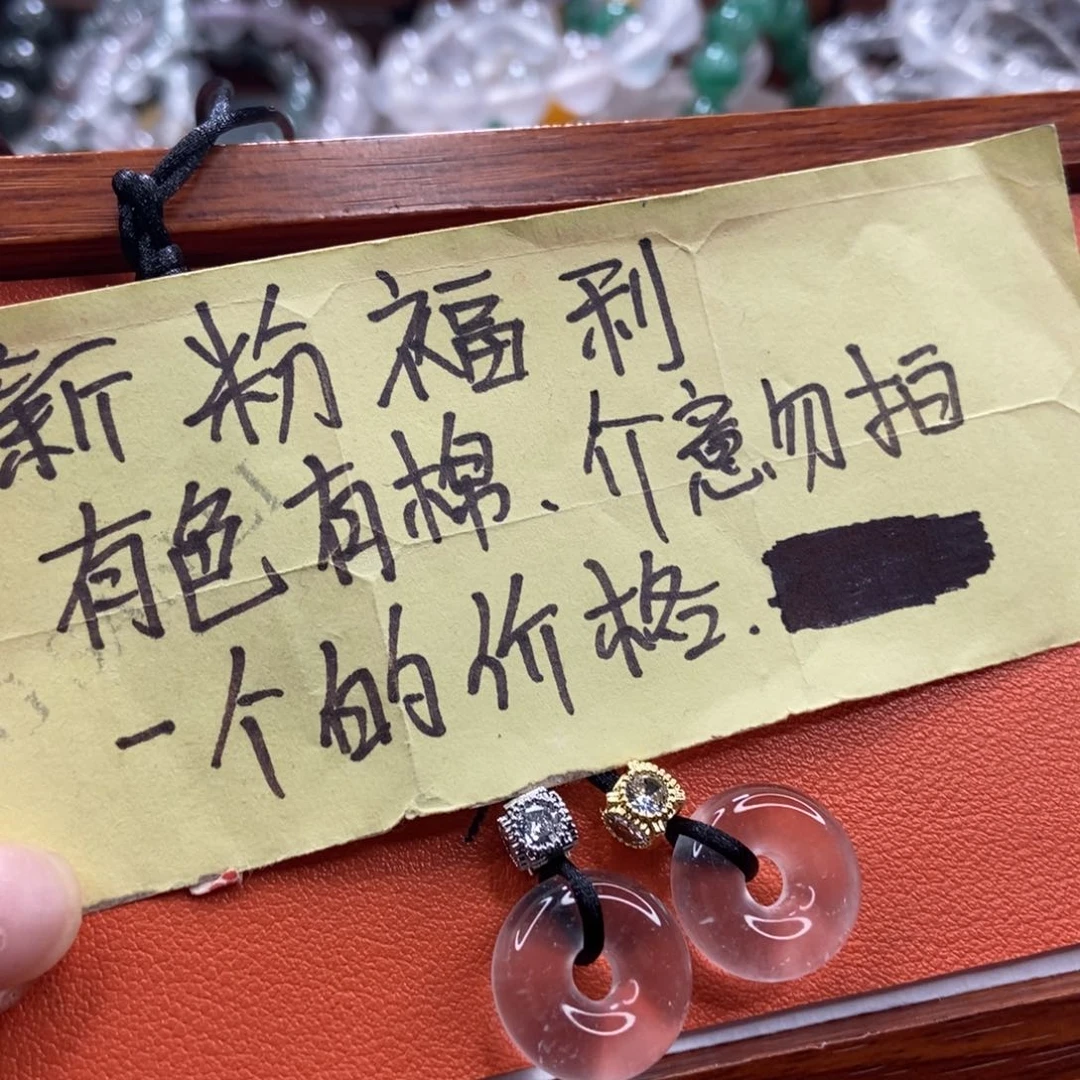 新粉福利
有色有棉、介意勿拍
一个的价格.